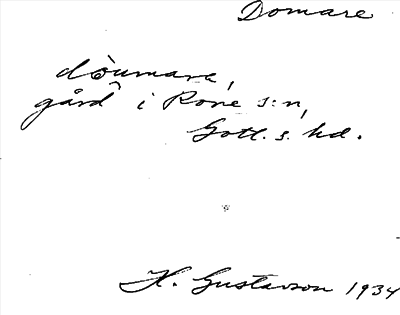 Domare
dòu̯mare,
gård i Rone s:n,
Gotl. s. hd.
H. Gustavson 1934